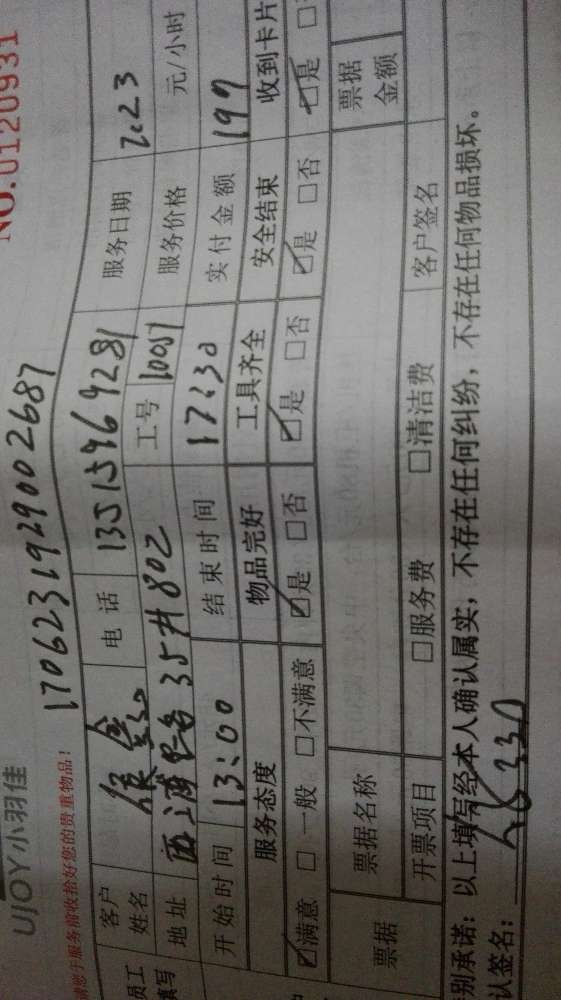 UJOY小羽佳
NO.0120931
1706231929002687
请您于服务前收拾好您的贵重物品!
员工填写
客户姓名 电话 13515969281 服务日期 7.23
地址 35# 802 工号 10057 服务价格 元/小时
开始时间 13:00 结束时间 17:30 实付金额 197
服务态度 物品完好 工具齐全 安全结束 收到卡片
☑满意 □一般 □不满意 ☑是 □否 ☑是 □否 ☑是 □否 ☑是
票据 票据名称 票据金额
开票项目 □服务费 □清洁费 客户签名
别承诺:以上填写经本人确认属实,不存在任何纠纷,不存在任何物品损坏。
认签名: